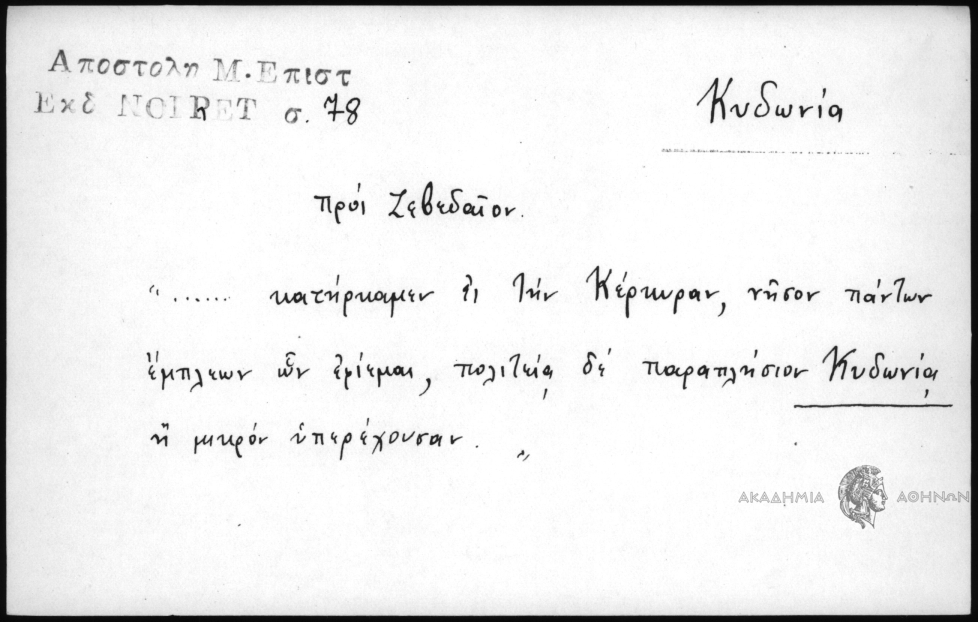 Αποστολη Μ. Επιστ
Εκδ NOIRET σ. 78
Κυδωνία
πρὸς Ζεβεδαῖον.
"...... κατήρκαμεν εἰς τὴν Κέρκυραν, νῆσον πάντων
ἔμπλεων ὧν ἐφίεμαι, πολιτείᾳ δὲ παραπλήσιον Κυδωνίᾳ
ἢ μικρόν ὑπερέχουσαν. "
ΑΚΑΔΗΜΙΑ ΑΘΗΝΩΝ